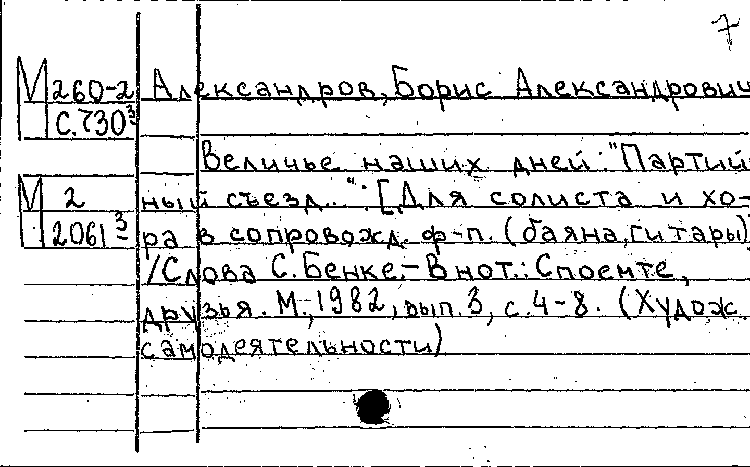 7
М 260-2 Александров, Борис Александрович
С.730³
Величье наших дней: "Партий
М 2 ный съезд..": [Для солиста и хо-
2061³ ра в сопровожд. ф-п. (баяна, гитары)
/Слова С. Бенке.- В нот.: Споемте,
друзья. М., 1982, вып. 3, с. 4-8. (Худож.
самодеятельности)